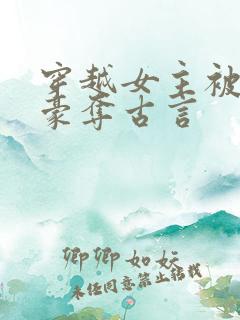 穿越女主被
豪夺古言
卿卿如妧
未经同意禁止转载